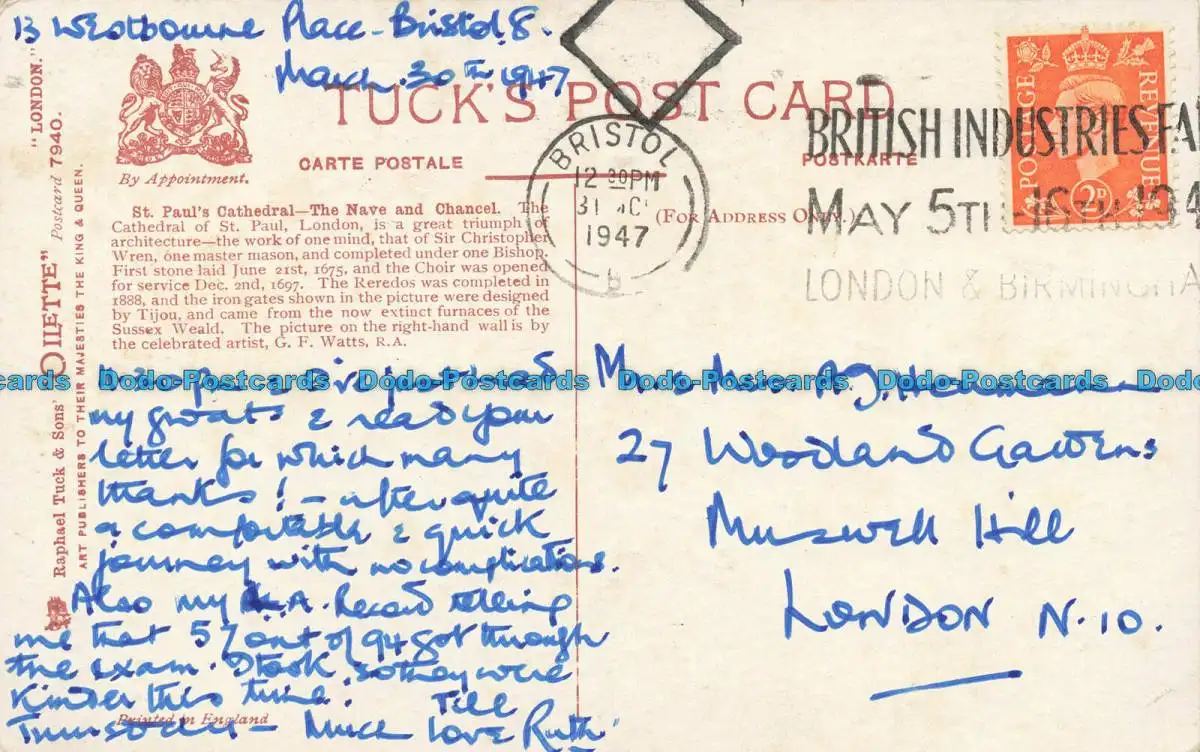 13 Westbourne Place - Bristol. 8.
March 30th 1947
TUCK'S POST CARD
CARTE POSTALE
POSTKARTE
(FOR ADDRESS ONLY.)
By Appointment.
"LONDON."
Raphael Tuck & Sons' "OILETTE" Postcard 7940.
ART PUBLISHERS TO THEIR MAJESTIES THE KING & QUEEN.
St. Paul's Cathedral—The Nave and Chancel. The
Cathedral of St. Paul, London, is a great triumph of
architecture—the work of one mind, that of Sir Christopher
Wren, one master mason, and completed under one Bishop.
First stone laid June 21st, 1675, and the Choir was opened
for service Dec. 2nd, 1697. The Reredos was completed in
1888, and the iron gates shown in the picture were designed
by Tijou, and came from the now extinct furnaces of the
Sussex Weald. The picture on the right-hand wall is by
the celebrated artist, G. F. Watts, R.A.
BRISTOL
12 30 PM
31
1947
BRITISH INDUSTRIES FA
MAY 5TH -16TH 194
LONDON & BIRMINGHA
POSTAGE
REVENUE
2D
my groats & read your
letter for which many
thanks! - after quite
a comfortable & quick
journey with no complications.
Also my Record telling
me that 57 out of 94 got through
the exam. I took so they were
kinder this time. Till
Thursday - Much love Ruth
A.J.
27 Woodland Gardens
Muswell Hill
LONDON N.10.
Printed in England
Dodo-Postcards Dodo-Postcards Dodo-Postcards Dodo-Postcards Dodo-Postcards